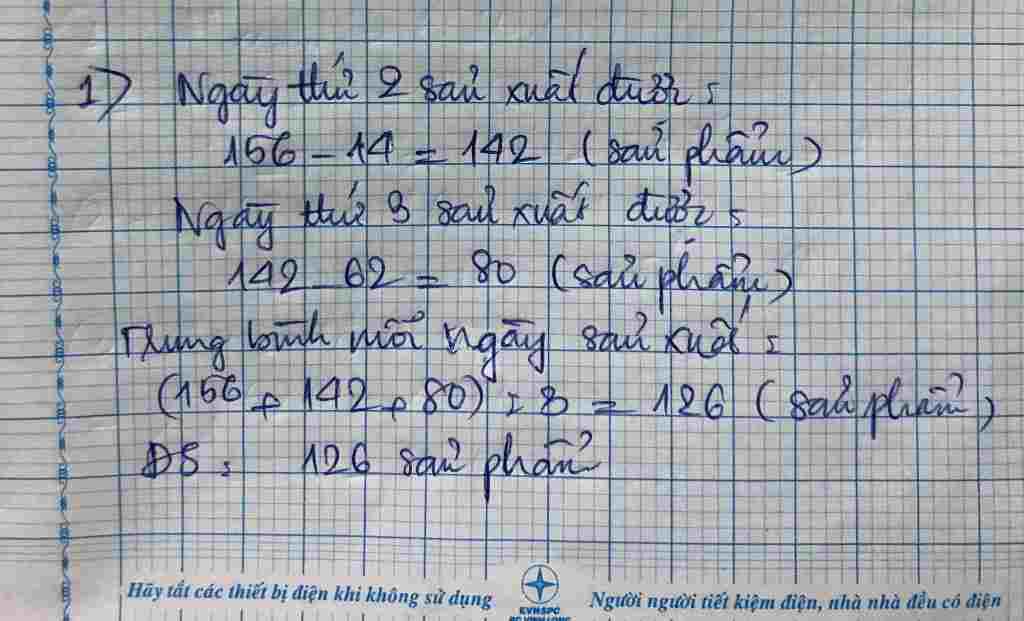 1) Ngày thứ 2 sản xuất được :
156 - 14 = 142 (sản phẩm)
Ngày thứ 3 sản xuất được :
142 - 62 = 80 (sản phẩm)
Trung bình mỗi ngày sản xuất :
(156 + 142 + 80) : 3 = 126 (sản phẩm)
ĐS : 126 sản phẩm
Hãy tắt các thiết bị điện khi không sử dụng
EVNSPC
PC VINH LONG
Người người tiết kiệm điện, nhà nhà đều có điện